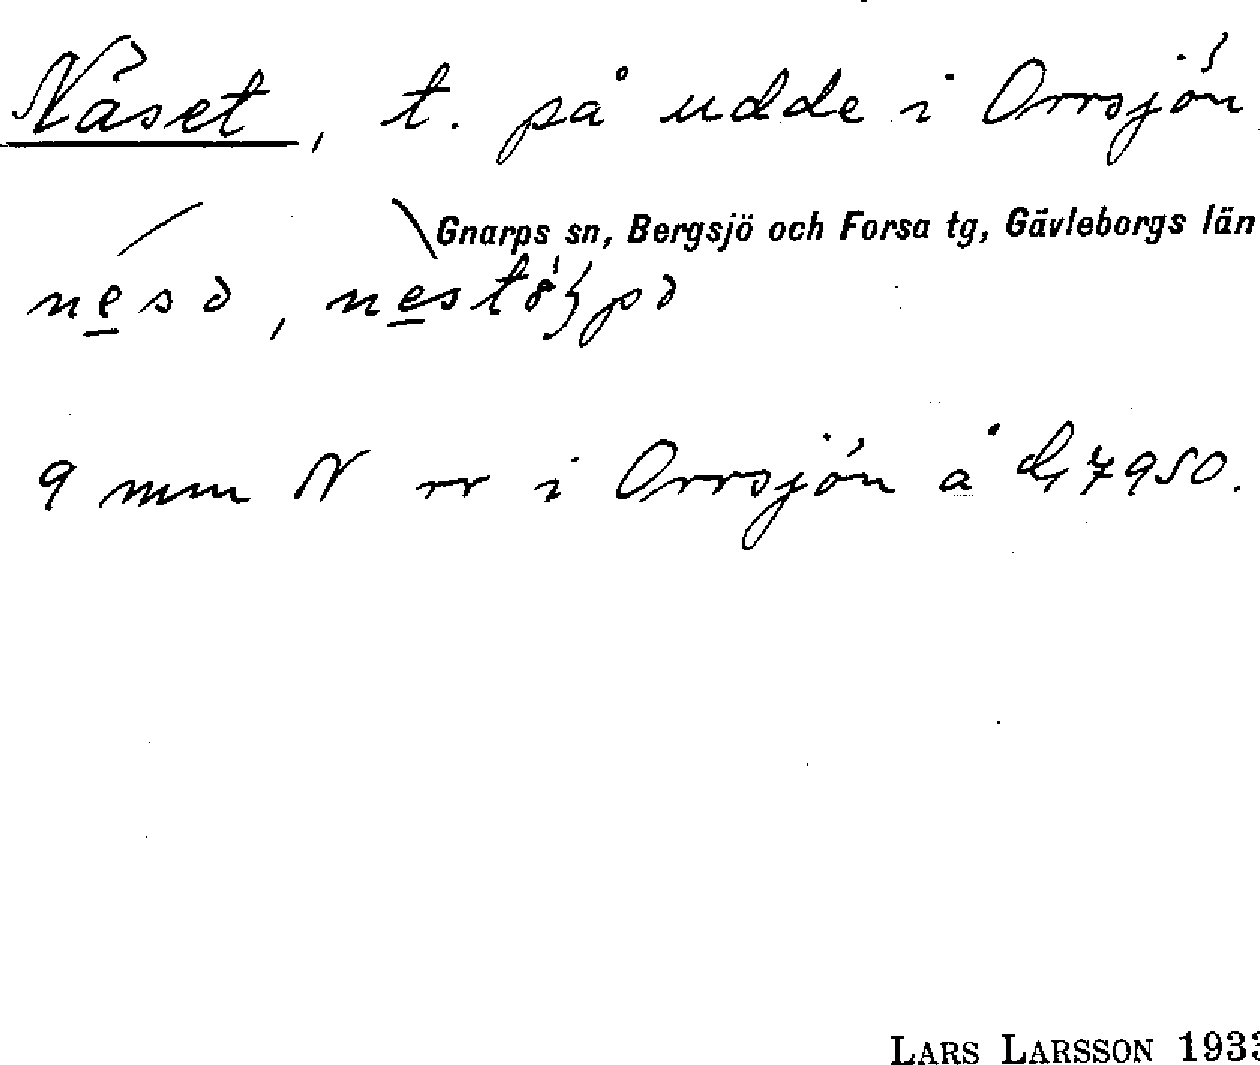 Näset, t. på udde i Orrsjön
Gnarps sn, Bergsjö och Forsa tg, Gävleborgs län
9 mm N rr i Orrsjön å 7950.
LARS LARSSON 1933